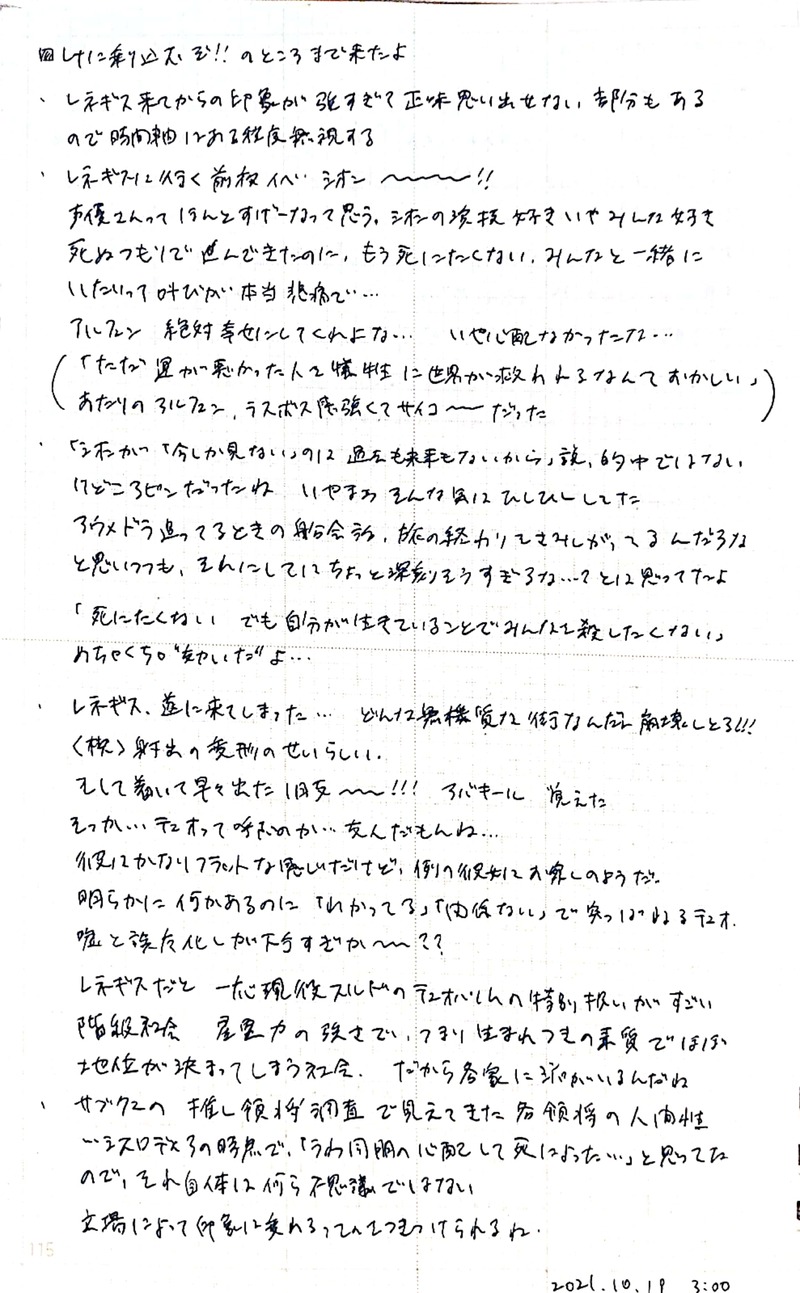 レナに乗り込むぞ!! のところまで来たよ
、レネギス来てからの印象が強すぎて正味思い出せない部分もある
ので時間軸はある程度無視する
、レネギスに行く前夜イベ シオン 〜〜〜!!
声優さんってほんとすげーなって思う。シオンの演技好き いやみんな好き
死ぬつもりで進んできたのに、もう死にたくない、みんなと一緒に
いたいって叫びが本当悲痛で…
アルフェン 絶対幸せにしてくれよな… いや心配なかったな…
(「ただ運が悪かった人を犠牲に世界が救われるなんておかしい」
あたりのアルフェン、ラスボス感強くてサイコ〜だった)
、「シオンが「今しか見ない」のは過去も未来もないから」説、的中ではない
けどニアピンだったね いやまあそんな気はひしひししてた
アウメドラ追ってるときの船会話、旅の終わりをさみしがってるんだろな
と思いつつも、それにしてはちょっと深刻そうすぎるな…?とは思ってたよ
「死にたくない でも自分が生きていることでみんなを殺したくない」
めちゃくちゃ"効いた"よ…
、レネギス、遂に来てしまった… どんな無機質な街なんだ 崩壊しとる!!!
〈楔〉射出の変形のせいらしい.
そして着いて早々出た旧友〜〜!!! アバキール 覚えた
そっか… テュオって呼ぶのか… 友人だもんね…
彼はかなりフラットな感じだけど、例の彼女はお家しのようだ.
明らかに何かあるのに「わかってる」「関係ない」で突っぱねるテュオ.
嘘と誤魔化しが下手すぎか〜〜??
レネギスだと 一応現役スルドのテュオハリムの特別扱いがすごい
階級社会 星霊力の強さで、つまり生まれつきの素質でほぼ
地位が決まってしまう社会. だから各家に派がいるんだね
、サブクエの 推し領将調査で見えてきた各領将の人間性
…シスロディアの時点で、「うわ同胞の心配して死によった…」と思ってた
ので、それ自体は何ら不思議ではない
立場によって印象は変わるってんてつきつけられるね.
115
2021.10.19 3:00